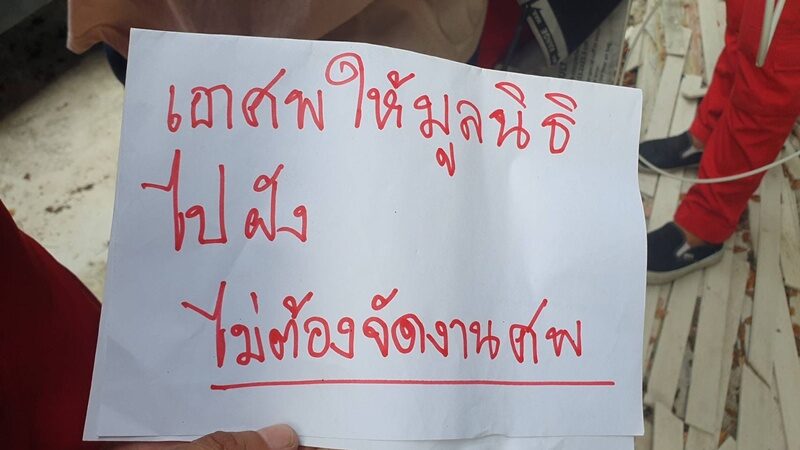 เอาศพให้มูลนิธิ
ไปฝัง
ไม่ต้องจัดงานศพ